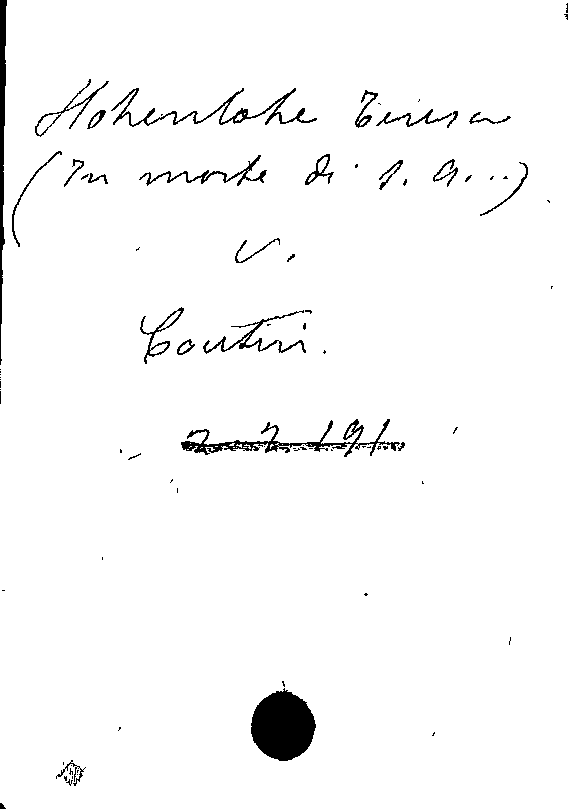 Hohenlohe Teresa
(In morte di S. A...)
v.
Contini.
2. 2. 191